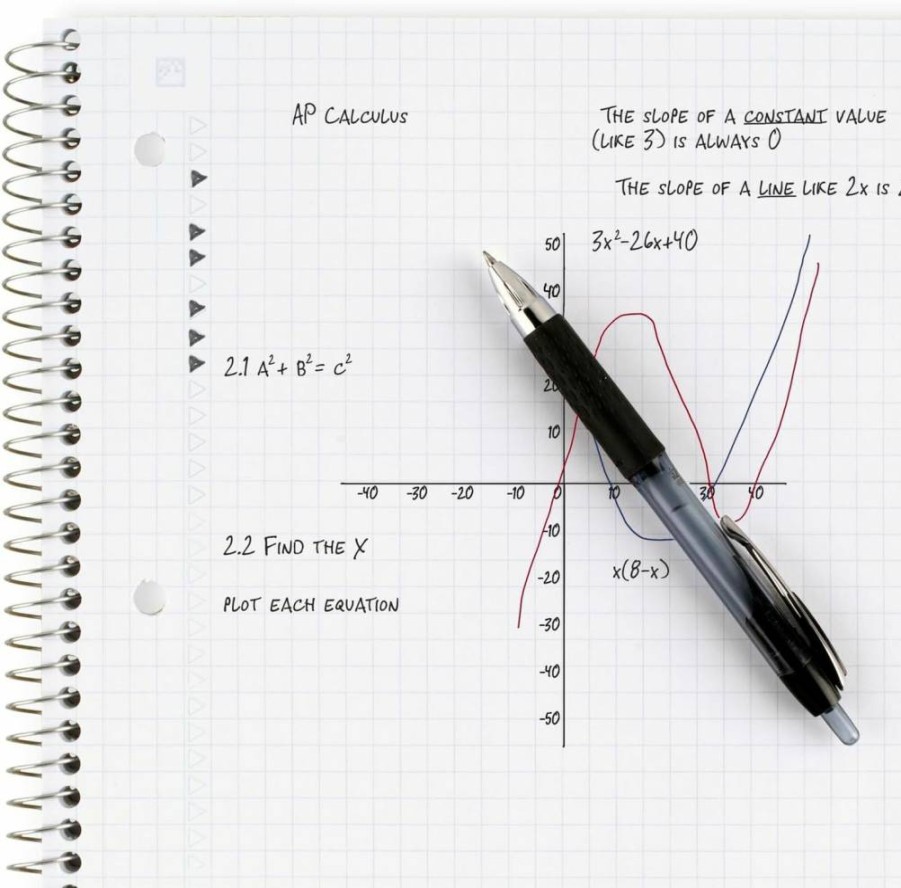 AP CALCULUS
THE SLOPE OF A CONSTANT VALUE
(LIKE 3) IS ALWAYS 0
THE SLOPE OF A LINE LIKE 2x IS
3x²-26x+40
50
40
20
10
2.1 A² + B² = C²
-40 -30 -20 -10 0 10 30 40
-10
-20
-30
-40
-50
x(8-x)
2.2 FIND THE X
PLOT EACH EQUATION